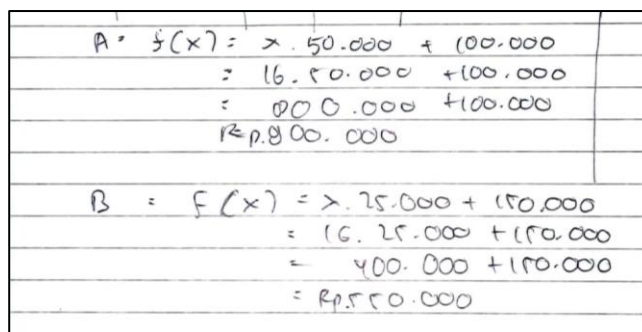 A = f(x) = x . 50.000 + 100.000
= 16 . 50.000 + 100.000
= 800.000 + 100.000
Rp. 900.000
B = f(x) = x . 25.000 + 150.000
= 16 . 25.000 + 150.000
= 400.000 + 150.000
= Rp. 550.000